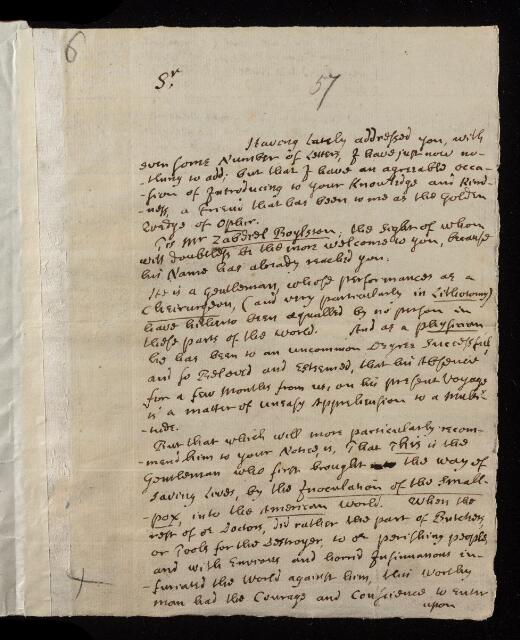 6
Sr
57
Having Lately addressed you, with
even some Number of Letters, I have just now no-
-thing to add; but that I have an agreeable occa-
-sion of Introducing to your Knowledge and Kind-
-ness, a Friend that has been to me as the Golden
Wedge of Ophir.
Tis Mr Zabdiel Boylston; the sight of whom
will doubtless be the more welcome to you, because
his Name has already reach'd you.
He is a Gentleman, whose performances as a
Cheirurgeon, (and very particularly in Lithotomy)
have hitherto been equalled by no person in
these parts of the World. And as a physician
he has been to an uncommon Degree Successful,
and so Beloved and Esteemed, that his Absence
for a few Months from us, on his present Voyage
is a matter of uneasy Apprehension to a Multi-
-tude.
But that which will more particularly recom-
-mend him to your Notice, is, That This is the
Gentleman who first brought the way of
saving Lives, by the Inoculation of the Small-
-pox, into the American World. When the
rest of or Doctors, did rather the part of Butchers,
or Tools for the Destroyer, to or perishing people,
and with Envious and horrid Insinuations in-
-furiated the World against him, this Worthy
man had the Courage and Conscience to Enter
upon